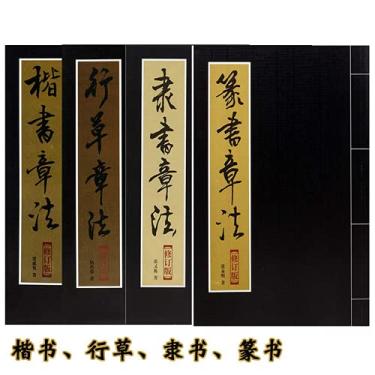 楷书章法
修订版
行草章法
隶书章法
修订版
篆书章法
修订版
楷书、行草、隶书、篆书